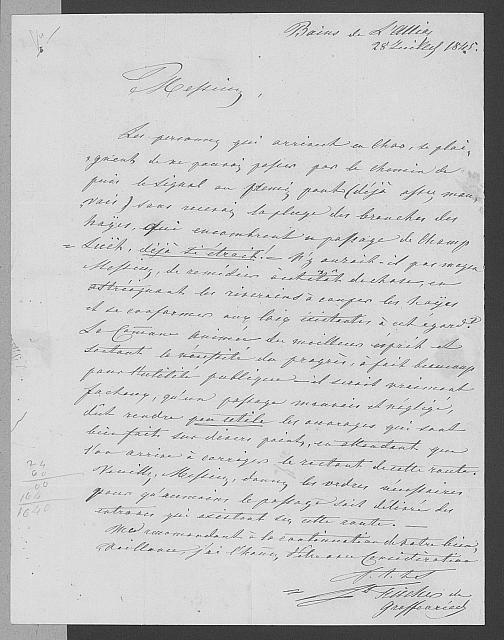 Bains de L'Alliaz
28 Juillet 1845.
Messieurs,
Les personnes qui arrivent en Char, se plai,
,gnent de ne pouvoir passer par le chemin de
puis le signal au premier pont (déjà assez mau,
,vais) sans recevoir la pluye des branches des
hayes, qui encombrent ce passage de Champ
= Luch, déjà si étroit! – N'y aurait-il pas moyen
Messieurs, de remédier à cet état de chose, en
astreignant les riverains à couper les hayes
et se conformer aux loix existantes à cet égard?
La Comune animée du meilleur esprit et
sentant le du progrès, a fait beaucoup
pour l'utilité publique – il serait vraiment
facheux, qu'un passage mauvais et négligé,
dût rendre peu utile les ouvrages qui sont
bienfaits sur divers points, en attendant que
l'on arrive à corriger le restant de cette route.
Veuillez, Messieurs, donner les ordres nécessaires
pour qu'au moins le passage soit délivré des
entraves qui existent sur cette route. –
Me recommandant à la continuation de votre bien,
,veillance, j'ai l'honn. d'être avec Considération
V. T. D. S.
= Fischer de
Graffenried
24
60
00
164
1640